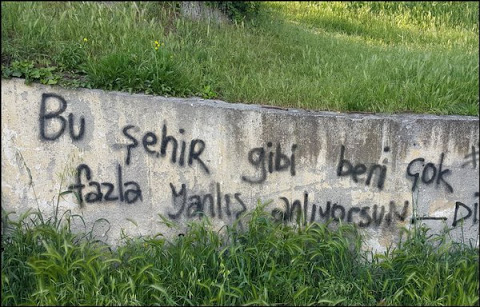 Bu şehir gibi beni çok #
fazla yanlış anlıyorsun — Di